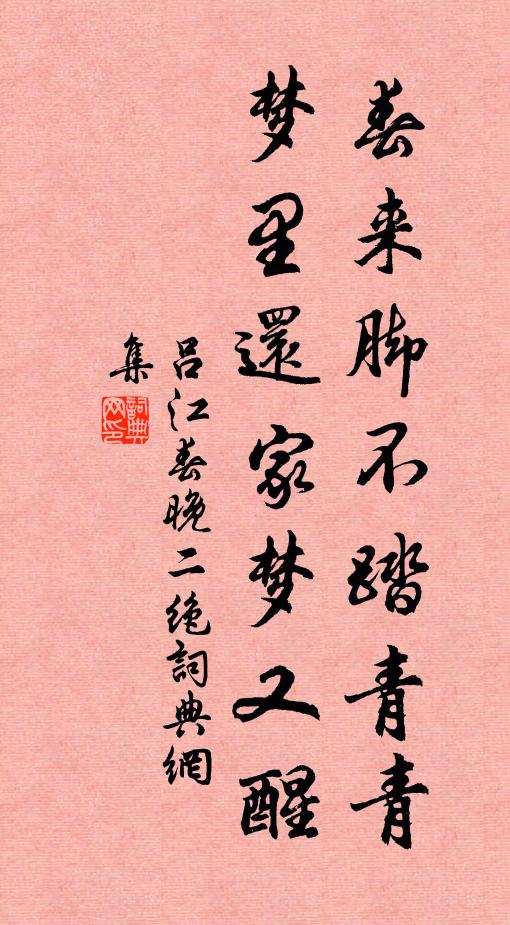 春来脚不踏青青
梦里還家梦又醒
吕江春晚二绝詞典網
集
詞典
网印